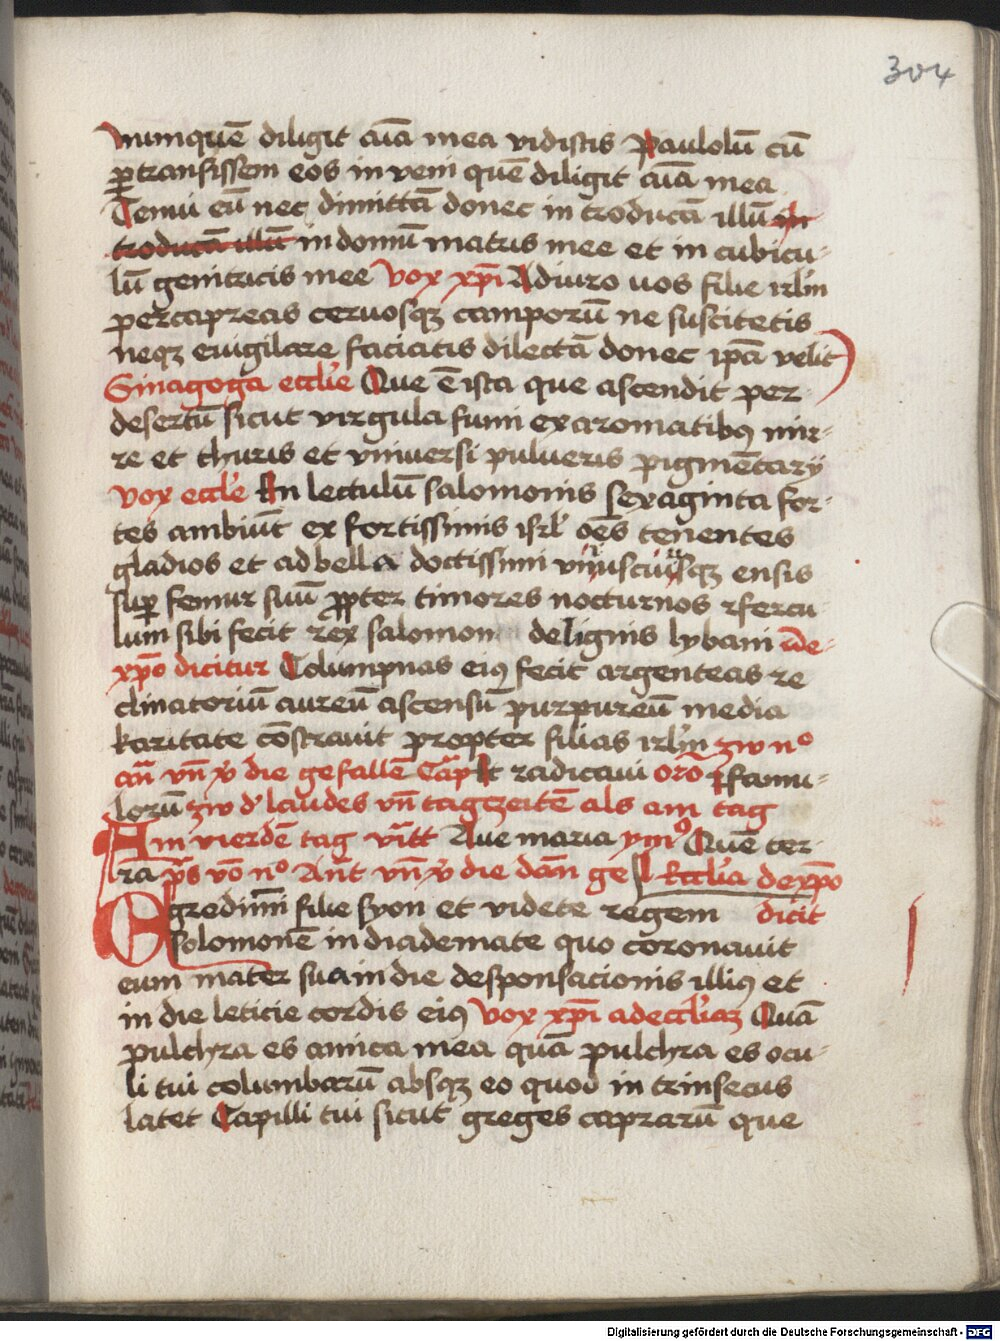 304
numquē diligit aīa mea vidistis Paulolū cū
ꝑtransissem eos in veni quē diligit aīa mea
Tenui eū nec dimittā donec in troducā illū in
troducā illū in domū matris mee et in cubicu-
lū genitricis mee vox xp̄i Adiuro uos filie irl̄m
per capreas ceruosqꝫ camporū ne suscitetis
neqꝫ euigilare faciatis dilectā donec ip̄a velit
Sinagoga eccl̄ie Que ē ista que ascendit per
desertū sicut virgula fumi ex aromatibꝫ mir-
re et thuris et vniuersi pulueris pigmētarÿ
vox eccl̄e En lectulū salomonis sexaginta for-
tes ambiūt ex fortissimis isrl̄ oēs tenentes
gladios et ad bella doctissimi vniuscuiusqꝫ ensis
suꝑ femur suū ꝓpter timores nocturnos rfercu
lum sibi fecit rex salomon de lignis lybani de
xp̄o dicitur Columpnas eiꝰ fecit argenteas re
clinatoriū aureū ascensū purpureū media
karitate cōstrauit propter filias irl̄m zw nº
an̄ vn̄ v̓ die gefallē Cap Et radicaui orō famu-
lorū zw d' laudes vn̄ tagzeitē als am tag
Am vierdē tag vītt Aue maria ymº Quē ter-
ra p̄s vō nº Ant̄ vn̄ v̓ die dān ge Eccl̄ia de xp̄o
Egredimī filie syon et videte regem dicit
solomonē in diademate quo coronauit
eum mater sua in die desponsacionis illiꝰ et
in die leticie cordis eiꝰ vox xp̄i ad eccl̄iaꝫ Quā
pulchra es amica mea quā pulchra es ocu-
li tui columbarū absqꝫ eo quod in trinsecus
latet Capilli tui sicut greges caprarū que
Digitalisierung gefördert durch die Deutsche Forschungsgemeinschaft - DFG